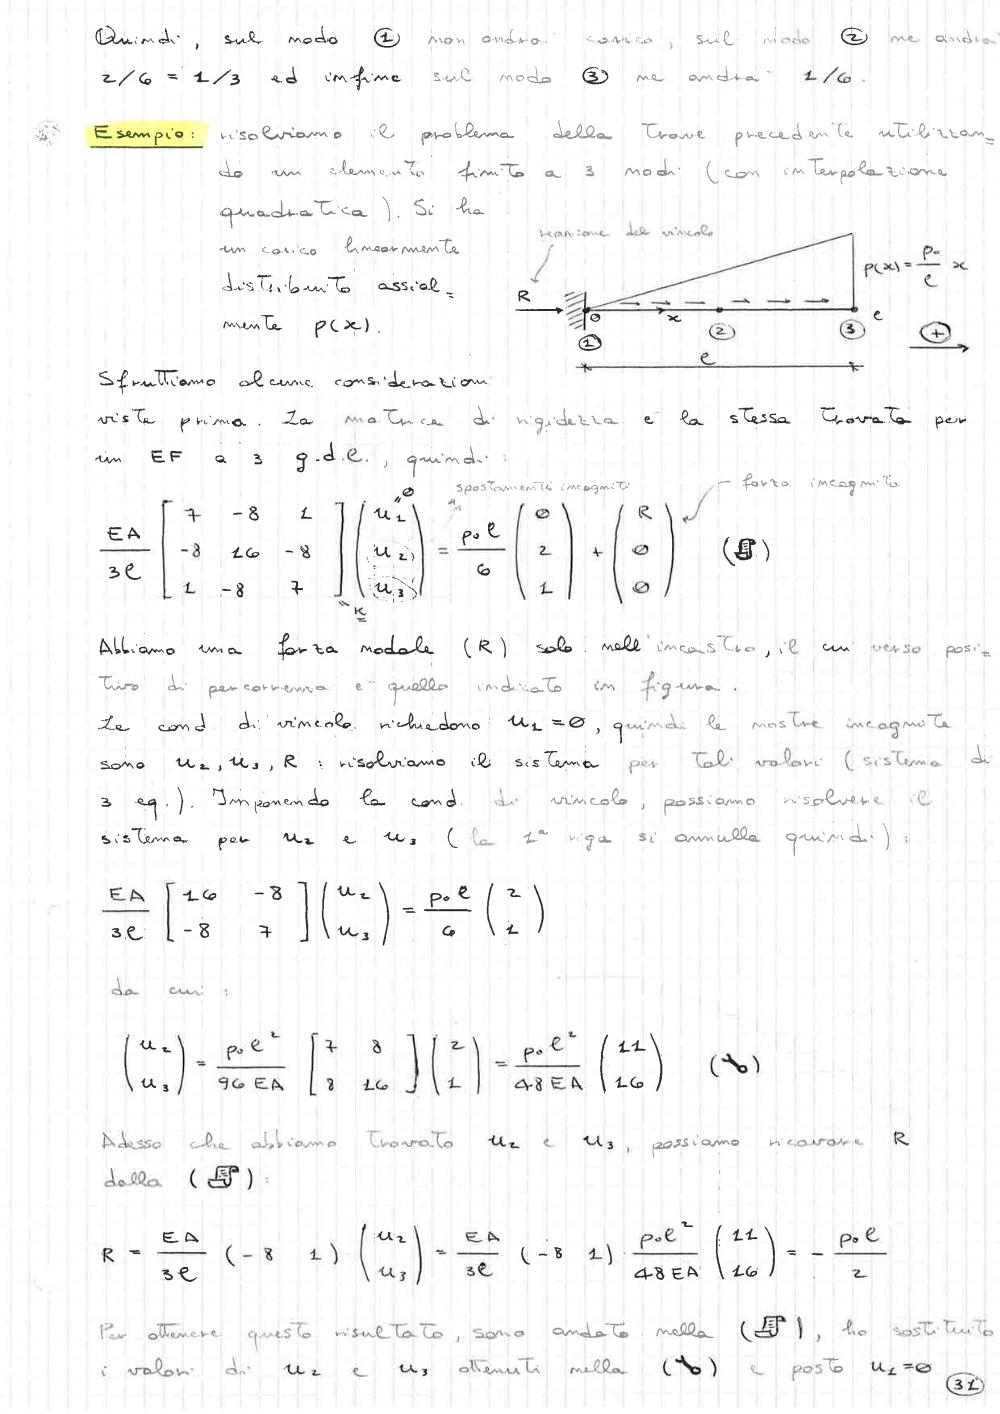 Quindi, sul nodo ① non andrà carico, sul nodo ② ne andrà
2/6 = 1/3 ed infine sul nodo ③ ne andrà 1/6.
Esempio: risolviamo il problema della trave precedente utilizzan=
do un elemento finito a 3 nodi (con interpolazione
quadratica). Si ha
un carico linearmente
distribuito assial=
mente p(x).
reazione del vincolo
R
p(x) = p₀/ℓ x
0 x ℓ
① ② ③
ℓ
+
Sfruttiamo alcune considerazioni
viste prima. La matrice di rigidezza è la stessa trovata per
un EF a 3 g.d.l., quindi:
spostamenti incogniti
forza incognita
EA/3ℓ [7 -8 1; -8 16 -8; 1 -8 7] (u₁ u₂ u₃) = p₀ℓ/6 (0 2 1) + (R 0 0)
"0
"K
Abbiamo una forza nodale (R) solo nell'incastro, il cui verso posi=
tivo di percorrenza è quello indicato in figura.
Le cond di vincolo richiedono u₁=0, quindi le nostre incognite
sono u₂, u₃, R : risolviamo il sistema per tali valori (sistema di
3 eq.). Imponendo la cond. di vincolo, possiamo risolvere il
sistema per u₂ e u₃ (la 1ª riga si annulla quindi):
EA/3ℓ [16 -8; -8 7] (u₂ u₃) = p₀ℓ/6 (2 1)
da cui:
(u₂ u₃) = p₀ℓ²/96EA [7 8; 8 16] (2 1) = p₀ℓ²/48EA (11 16)
Adesso che abbiamo trovato u₂ e u₃, possiamo ricavare R
dalla ( ):
R = EA/3ℓ (-8 1) (u₂ u₃) = EA/3ℓ (-8 1) · p₀ℓ²/48EA (11 16) = - p₀ℓ/2
Per ottenere questo risultato, sono andato nella ( ), ho sostituito
i valori di u₂ e u₃ ottenuti nella ( ) e posto u₁=0
31